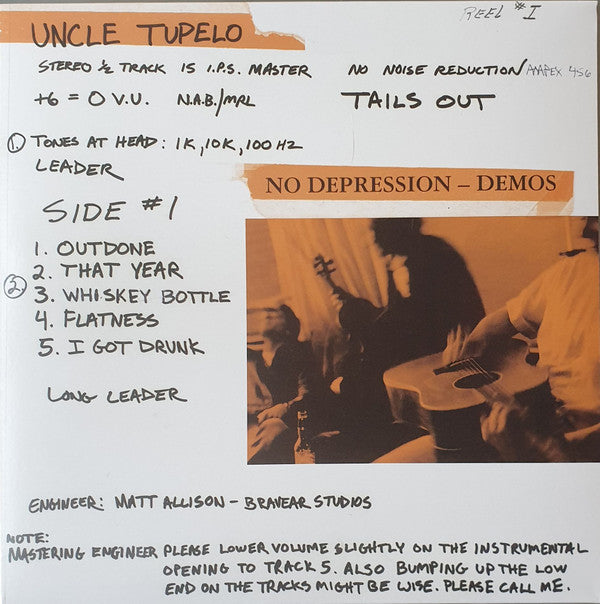 REEL #I
UNCLE TUPELO
STEREO ½ TRACK IS I.P.S. MASTER
NO NOISE REDUCTION/AMPEX 456
+6 = 0 V.U. N.A.B./MRL
TAILS OUT
1. TONES AT HEAD: 1K, 10K, 100 HZ
LEADER
NO DEPRESSION – DEMOS
SIDE #1
1. OUTDONE
2. THAT YEAR
2. 3. WHISKEY BOTTLE
4. FLATNESS
5. I GOT DRUNK
LONG LEADER
ENGINEER: MATT ALLISON – BRAVEAR STUDIOS
NOTE:
MASTERING ENGINEER PLEASE LOWER VOLUME SLIGHTLY ON THE INSTRUMENTAL
OPENING TO TRACK 5. ALSO BUMPING UP THE LOW
END ON THE TRACKS MIGHT BE WISE. PLEASE CALL ME.